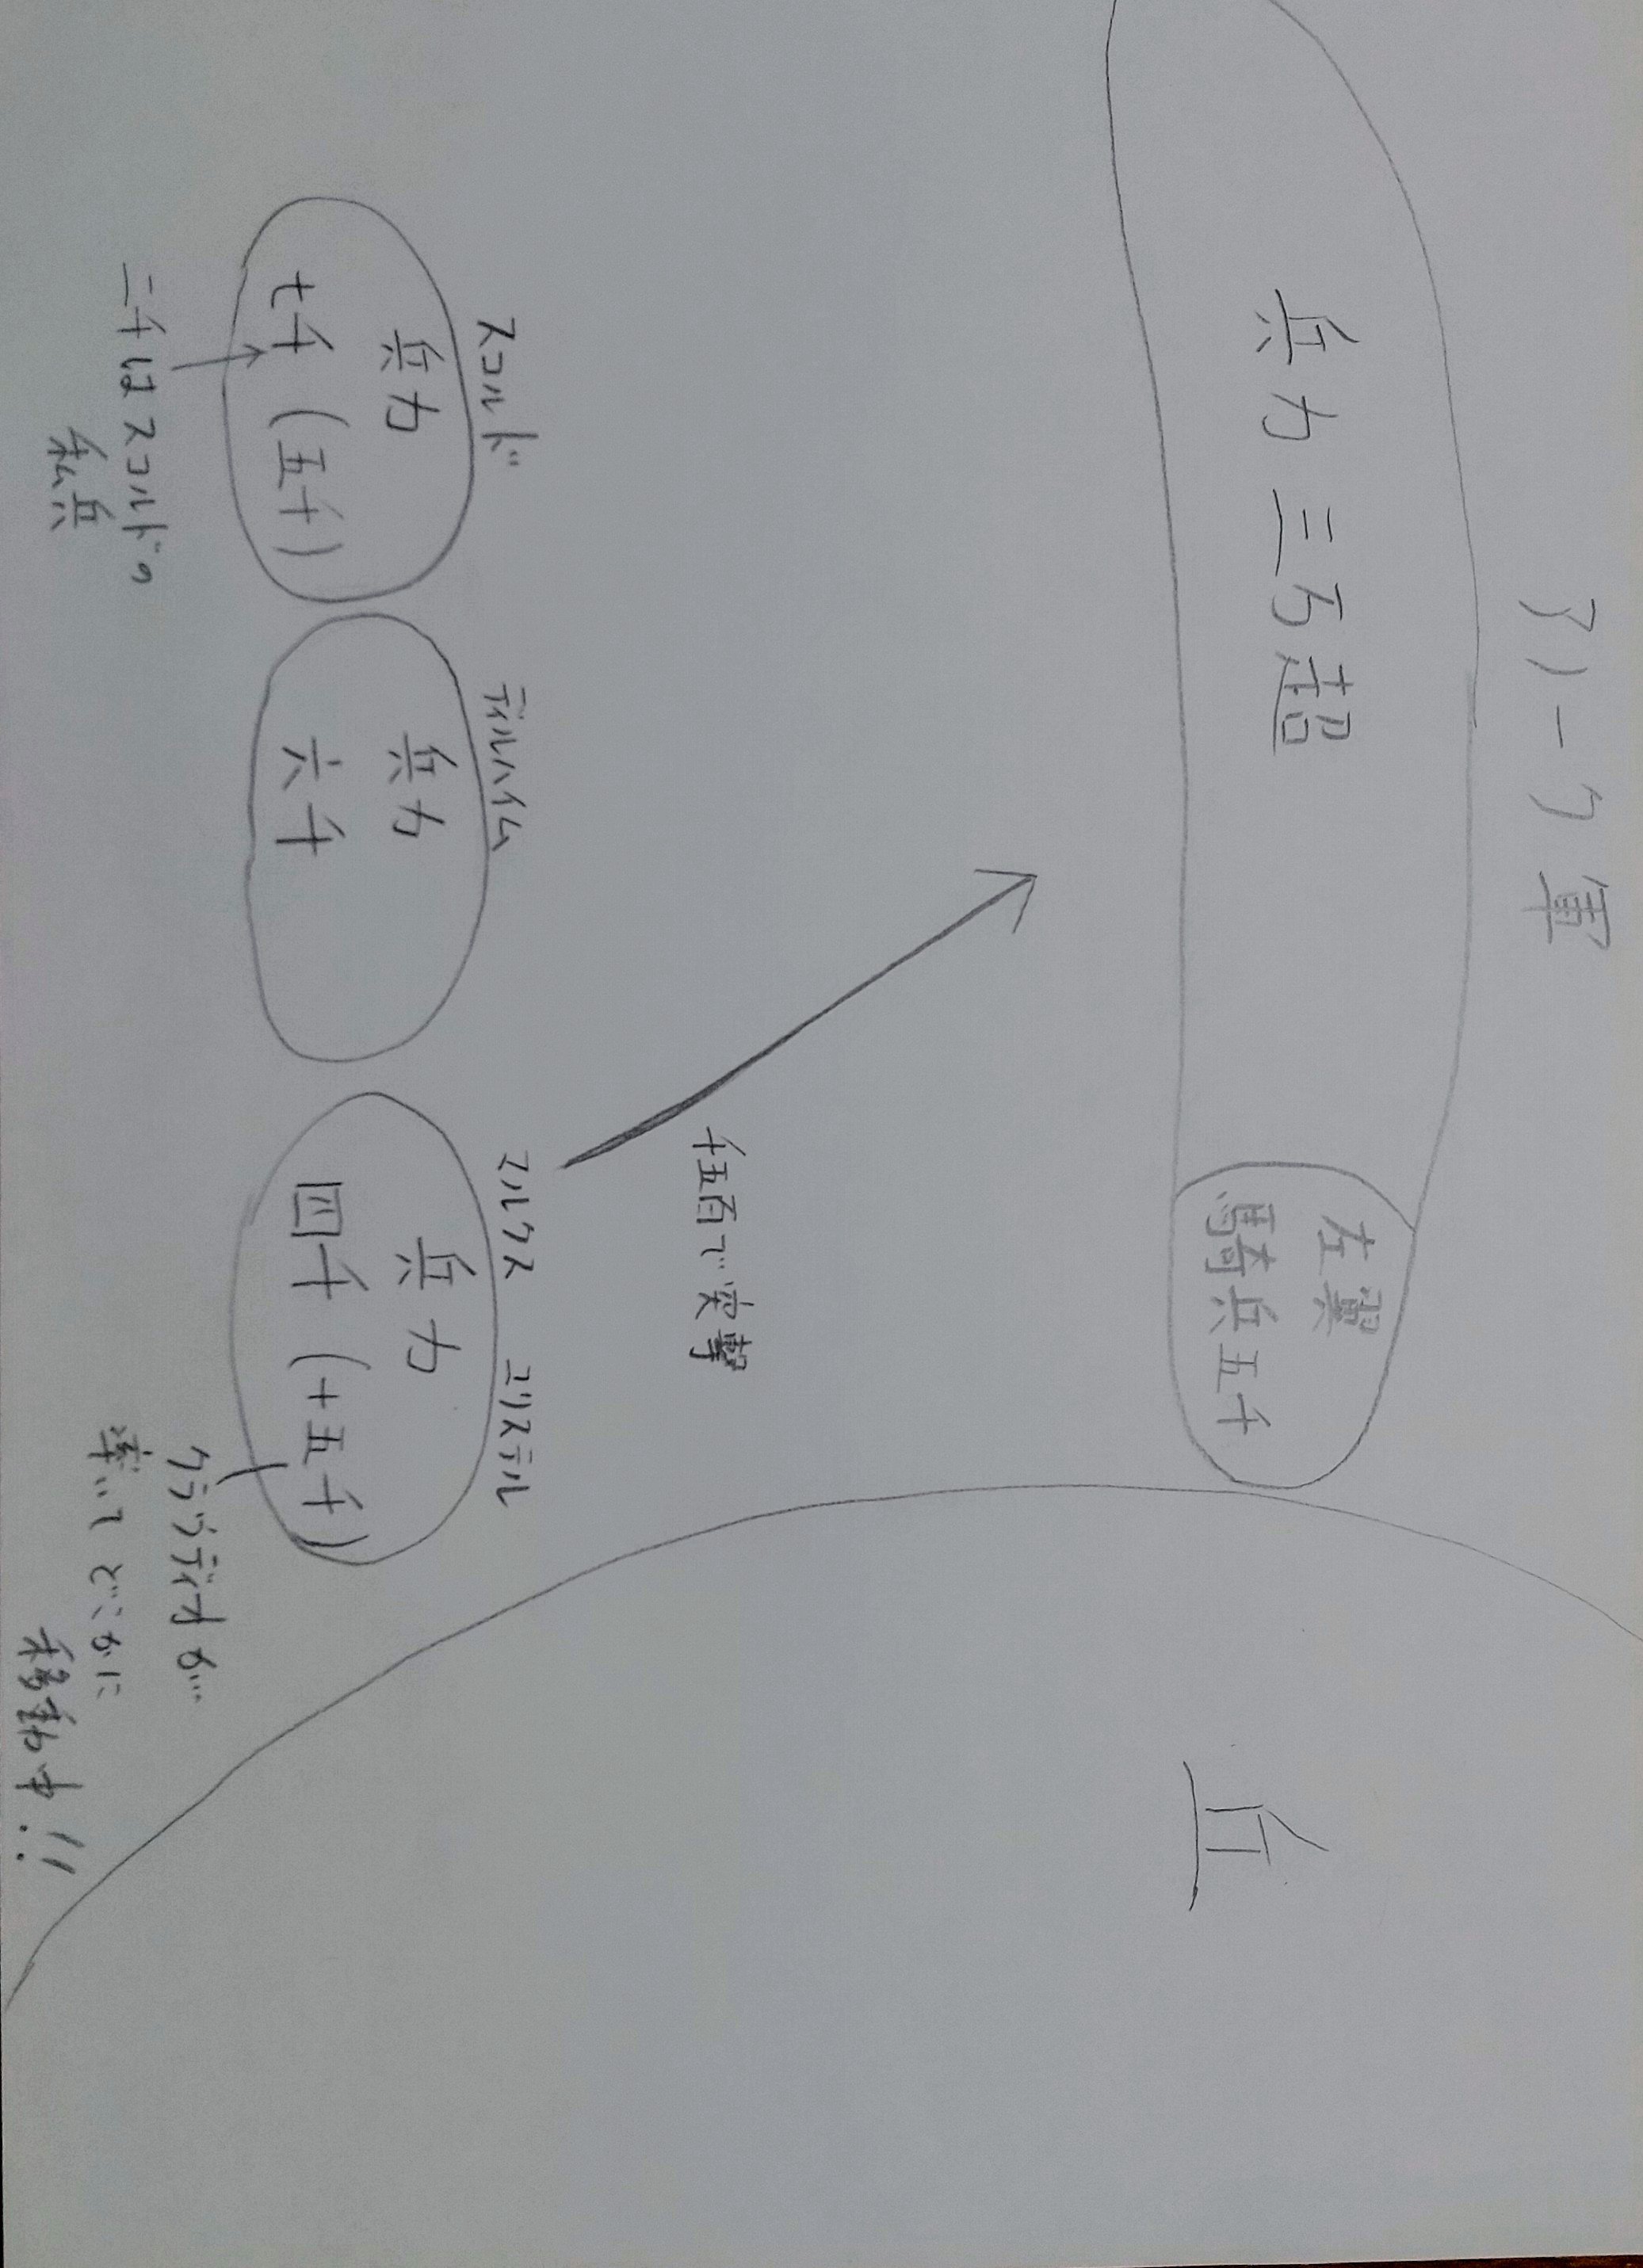 アリーク軍
兵力三万超
左翼
騎兵五千
丘
千五百で突撃
スコルド
兵力
七千(五千)
二千はスコルドの
私兵
ディルハイム
兵力
六千
マルクス ユリステル
兵力
四千(+五千)
クラウディオが
率いてどこかに
移動中!!